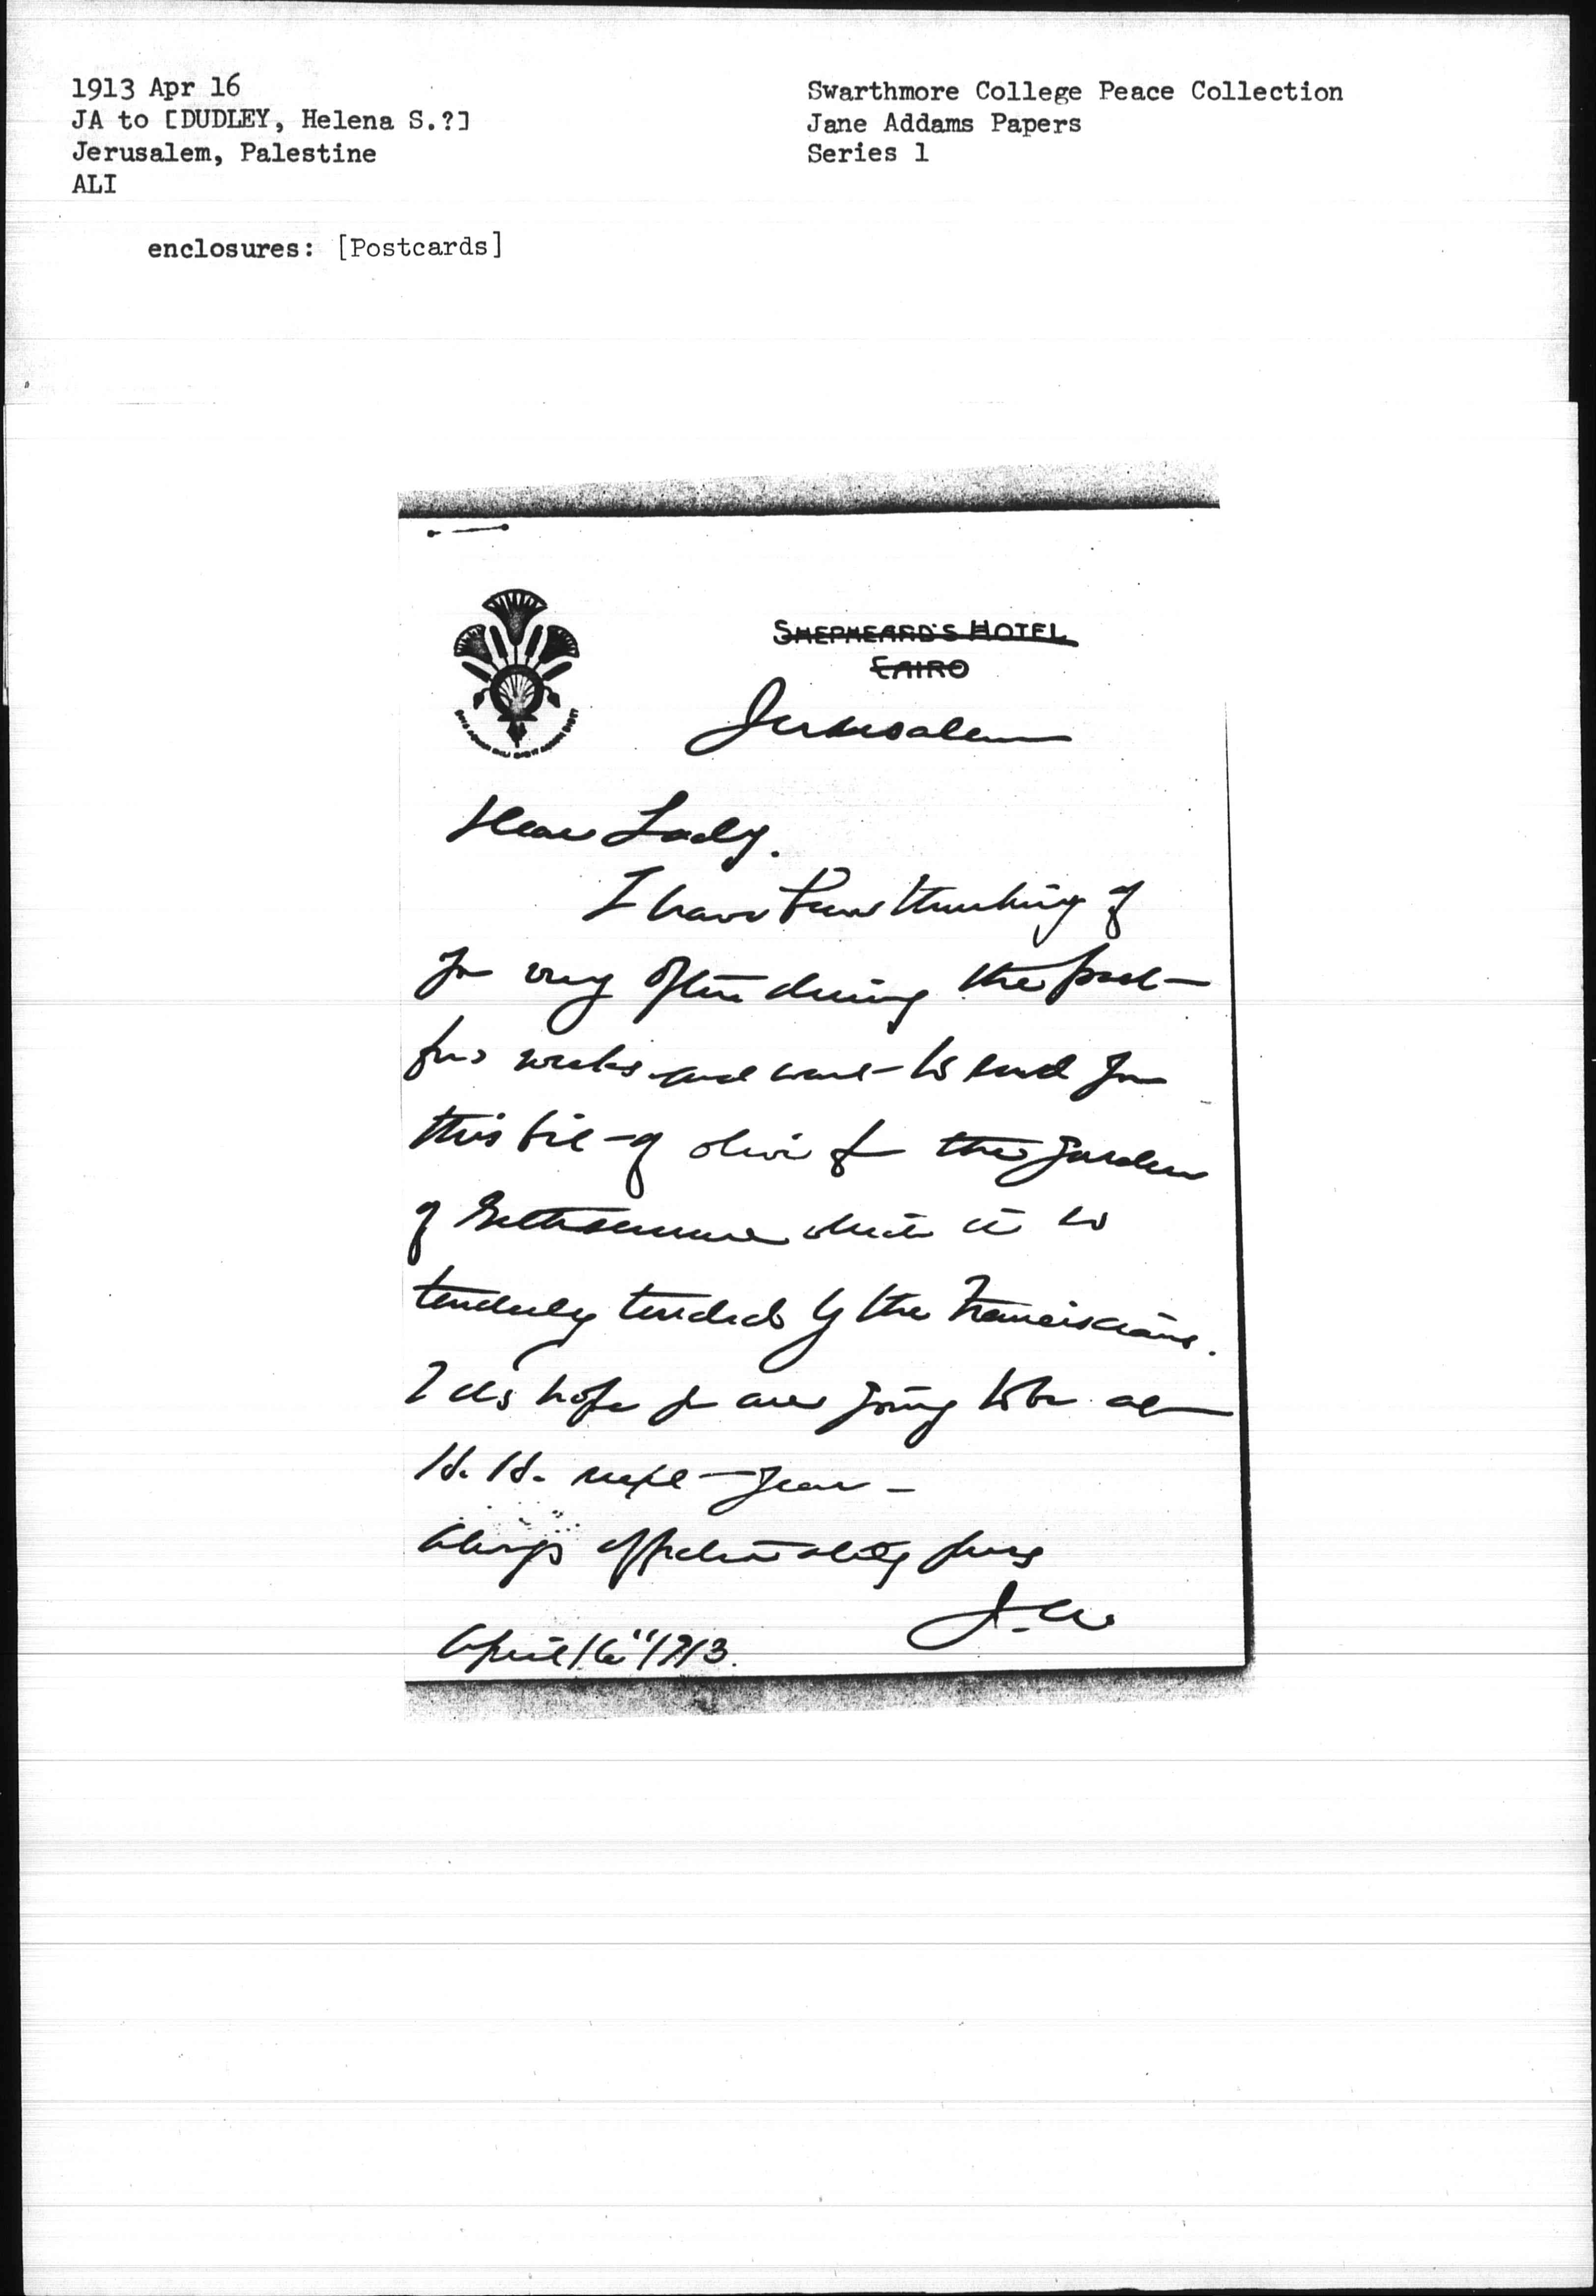 1913 Apr 16
JA to [DUDLEY, Helena S.?]
Jerusalem, Palestine
ALI
enclosures: [Postcards]
Swarthmore College Peace Collection
Jane Addams Papers
Series 1
SHEPHEARD'S HOTEL
CAIRO
Jerusalem
Dear Lady.
I have been thinking of
you very often during the past
few weeks and want to send you
this bit of olive the garden
of Gethsemane which is so
tenderly tended by the Franciscans.
I do hope you are going to be at
H. H. next year –
Always affectionately yours
J. A.
April 16" 1913.